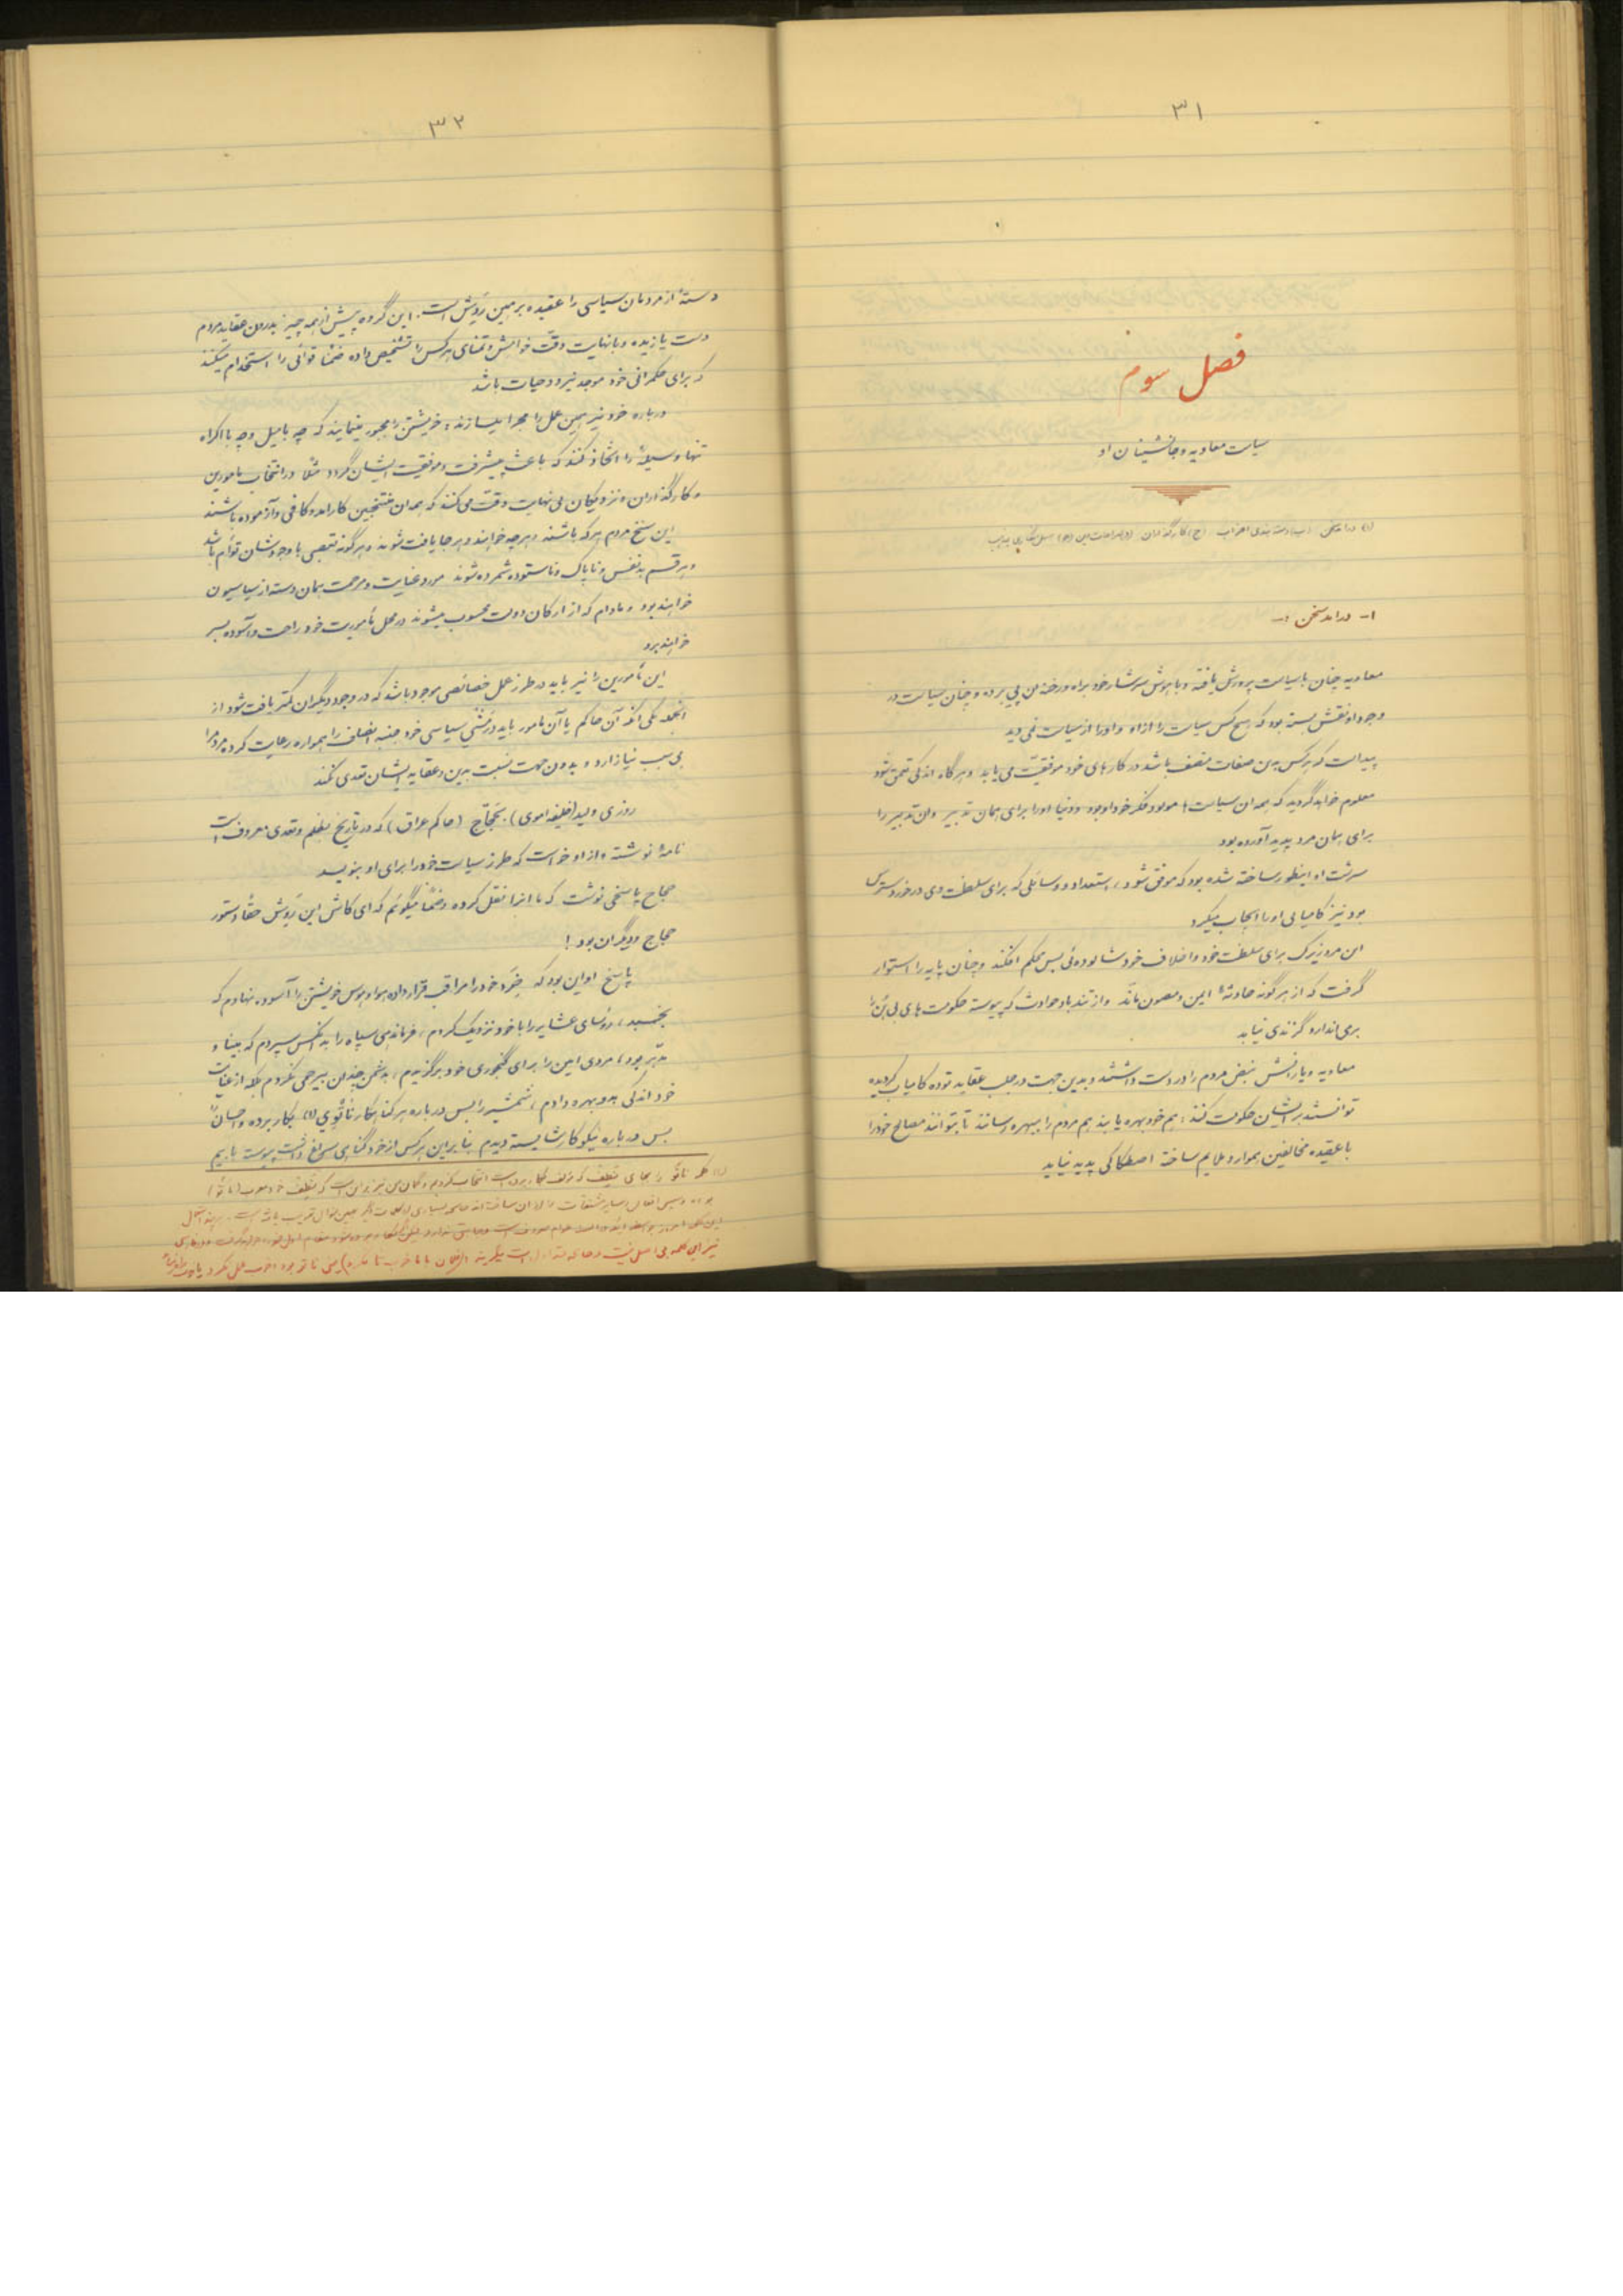 ۳۱
فصل سوم
سیاست معاویه و جانشینان او
۱- درآمد سخن :-
معاویه چنان با سیاست پرورش یافته و با هوش سرشار خود براه و رخنه آن پی برده و چنان سیاست در
وجود او نقش بسته بود که هیچ کس سیاست را از او و او را از سیاست نمی دید
پیداست که هر کس بدین صفات متصف باشد در کارهای خود موفقیت می یابد و هر گاه اندکی تعمق شود
معلوم خواهد گردید که همه آن سیاست ها مولود فکر خود او بود و دنیا او را برای همان تدبیر و آن تدبیر را
برای همان مرد پدید آورده بود
سرشت او اینطور ساخته شده بود که موفق شود، استعداد و وسائلی که برای سلطنت وی در خور و دسترس
بود نیز کامیابی او را ایجاب میکرد
این مرد زیرک برای سلطنت خود و اخلاف خود شالوده ئی بس محکم افکند و چنان پایه را استوار
گرفت که از هر گونه حادثهٔ ایمن و مصون ماند و از تند باد حوادث که پیوسته حکومت های بی بن را
بر می اندازد گزندی نیابد
معاویه و یارانش نبض مردم را در دست داشتند و بدین جهت در جلب عقاید توده کامیاب گردیده
توانستند بر ایشان حکومت کنند؛ هم خود بهره یابند هم مردم را ببهره رسانند تا بتوانند مصالح خود را
با عقیده مخالفین هموار و ملایم ساخته اصطکاکی پدید نیاید
۳۲
دستهٔ از مردمان سیاسی را عقیده بر همین روش است. این گروه پیش از همه چیز بدرون عقاید مردم
دست یازیده و با نهایت دقت خواهش و تمنای هر کس را تشخیص داده ضمناً قوائی را استخدام میکنند
که برای حکمرانی خود موجد نیرو و حیات باشد
درباره خود نیز همین عمل را مجرا میسازند؛ خویشتن را مجبور مینمایند که چه با میل و چه با اکراه
تنها وسیلهٔ را اتخاذ کنند که باعث پیشرفت و موفقیت ایشان گردد مثلاً در انتخاب مامورین
و کارگذاران و نزدیکان بی نهایت دقت می کنند که همه آن منتخبین کارآمد و کافی و آزموده باشند
این سنخ مردم هر که باشند و هر چه خواهند و هر جا یافت شوند و هر گونه تعصبی با وجودشان توأم باشد
و هر قسم بد نفس و ناپاک و ناستوده شمرده شوند مورد عنایت و مرحمت همان دسته از سیاسیون
خواهند بود و مادام که از ارکان دولت محسوب میشوند در محل مأموریت خود راحت و آسوده بسر
خواهند برد
این مأمورین را نیز باید در طرز عمل خصائصی موجود باشد که در وجود دیگران کمتر یافت شود از
آنجمله یکی آنکه آن حاکم یا آن مامور باید در مشی سیاسی خود جنبه انصاف را همواره رعایت کرده مردم را
بی سبب نیازارد و بدون جهت نسبت بدین و عقاید ایشان تعدی نکند
روزی ولید (خلیفه اموی) بحجّاج (حاکم عراق) که در تاریخ بظلم و تعدی معروف است
نامهٔ نوشته و از او خواست که طرز سیاست خود را برای او بنویسد
حجاج پاسخی نوشت که ما آنرا نقل کرده و ضمناً میگوئیم که ای کاش این روش حقاً دستور
حجاج و دیگران بود!
پاسخ او این بود که خِرَد خود را مراقب قرار داده هوا و هوس خویشتن را آسوده نهادم که
بخسبد، روسای عشایر را با خود نزدیک کردم، فرماندهی سپاه را به آنکس سپردم که بینا و
مدبّر بود، مردی امین را برای گنجوری خود برگزیدم، بدشمن چندان بیرحمی نکردم بلکه از عنایت
خود اندکی بدو بهره دادم، شمشیر را بس درباره هر گناهکار ناتوی (۱) بکار برده و احسان را
بس درباره نیکوکار شایسته دیدم بنابراین هر کس از خود گناهی سراغ داشت پیوست با بیم